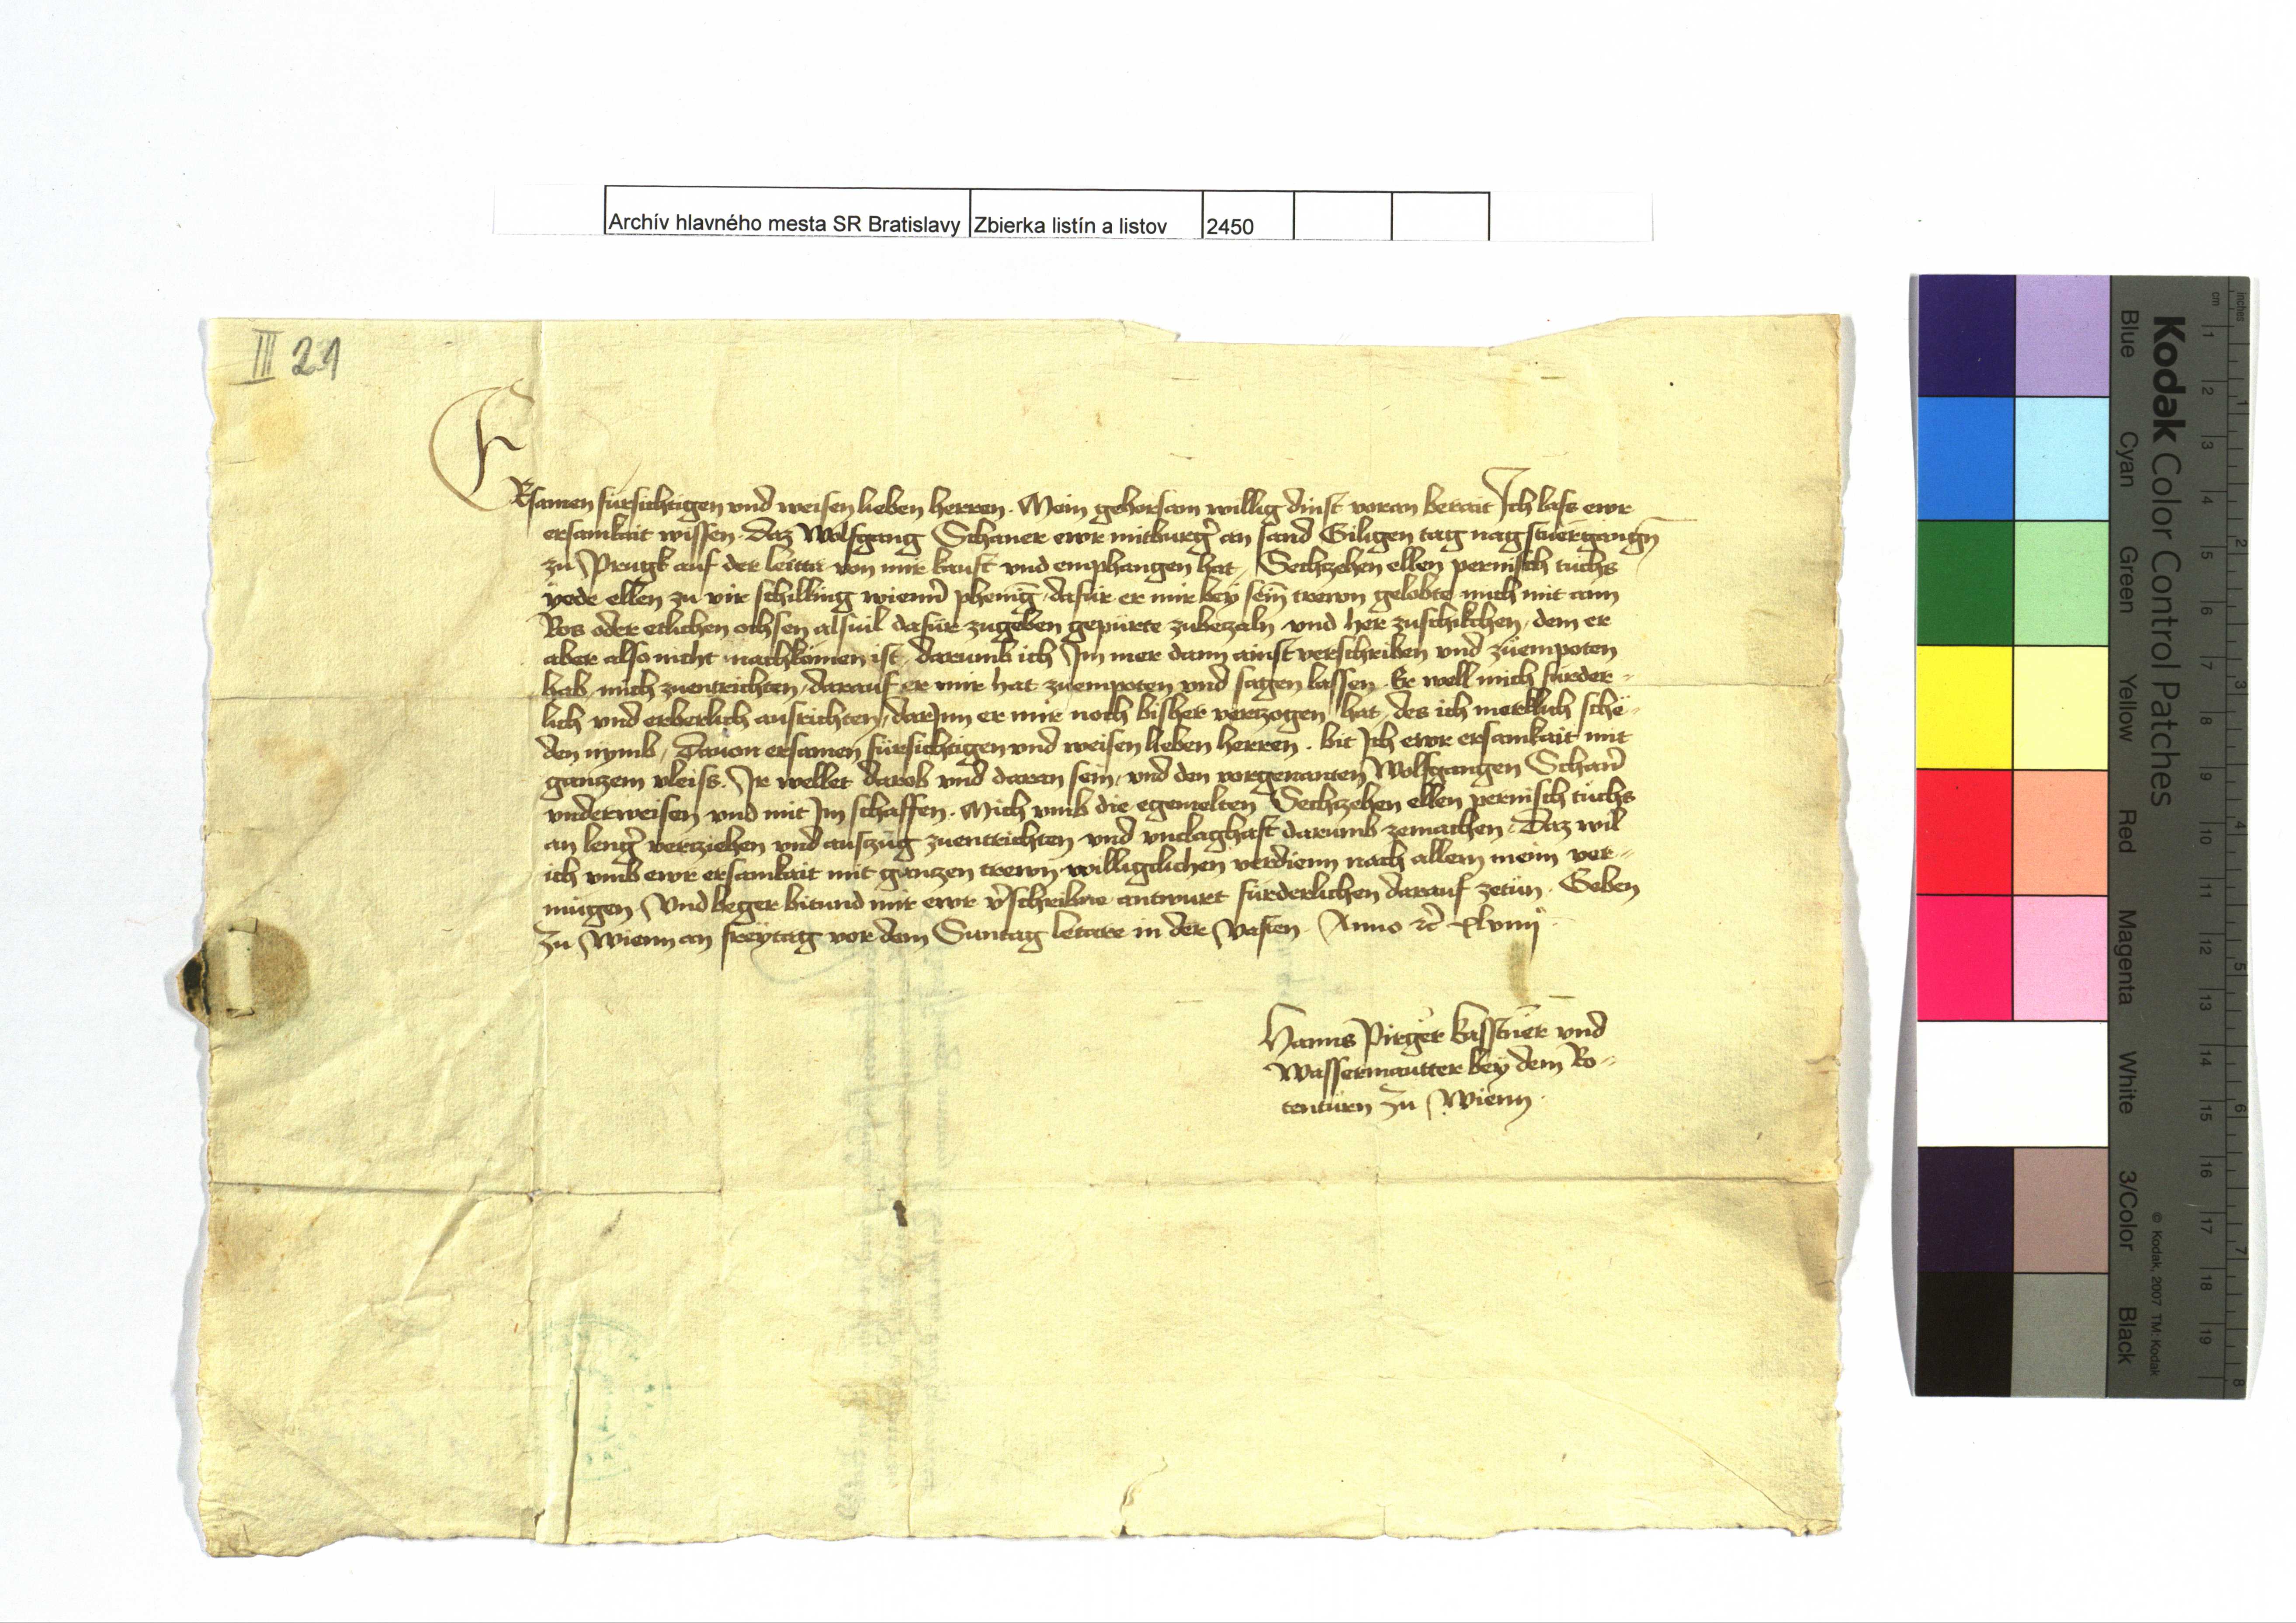 Archív hlavného mesta SR Bratislavy Zbierka listín a listov 2450
III 21
ERsamen fürsichtigen vnd weisen lieben herren. Mein gehorsam willig dinst voran berait Ich lass ewr
ersamkait wissen. Daz Wolfgang Schaner ewr mitburg̉ an sand Giligen tag nagstuergangn̄
zu Prugk auf der leitta von mir kauft vnd emphangen hat, Sechzehen ellen pernisch tuchs
yede ellen zu vir schilling wienn̉ phenīg, dafür er mir bey seīn trewn gelobte mich mit ann
Ros oder etlichen ochsen alsuil dafür zugeben gepürte zubezaln vnd her zuschikchen, dem er
aber also nicht nachkomen ist, darumb ich Im mer dann ainst verschriben vnd zuempoten
hab, mich zuentrichten, darauf er mir hat zuempoten vnd sagen lassen. Er well mich fürder-
lich vnd erberlich ausrichten, darInn er mir noch bisher verzogen hat, des ich merklich sche-
den nymb, Dauon ersamen fürsichtigen vnd weisen lieben herren. bit Ich ewr ersamkait mit
ganzem vleiss. Ir wellet darob vnd daran sein, vnd den vorgenanten Wolfgangen Schan̉
vnderweisen vnd mit Im schaffen. Mich vmb die egemelten Sechzehen ellen pernisch tuchs
an leng̉ verziehen vnd auszug zuentrichten vnd vnclaghaft darumb zemachen. Daz wil
ich vmb ewr ersamkait mit ganzen trewn willigclichen verdienn nach allem meim ver-
mugen. Vnd beger bitund mir ewr v̉schribne antwurt fürderlichen darauf zetun. Geben
zu Wienn an freytag vor dem Suntag letare in der Vasten. Anno ꝛc̉ xlviiijº
Hanns Pirger kasstner vnd
Wassermautter bey dem Ro-
tenturn zu Wienn.
Kodak Color Control Patches
Blue Cyan Green Yellow Red Magenta White 3/Color Black
© Kodak, 2007 TM: Kodak
inches 1 2 3 4 5 6 7 8
cm 1 2 3 4 5 6 7 8 9 10 11 12 13 14 15 16 17 18 19